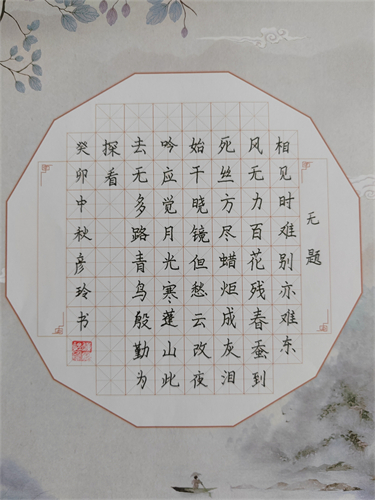 无题
相见时难别亦难东
风无力百花残春蚕到
死丝方尽蜡炬成灰泪
始干晓镜但愁云改夜
吟应觉月光寒蓬山此
去无多路青鸟殷勤为
探看
癸卯中秋彦玲书